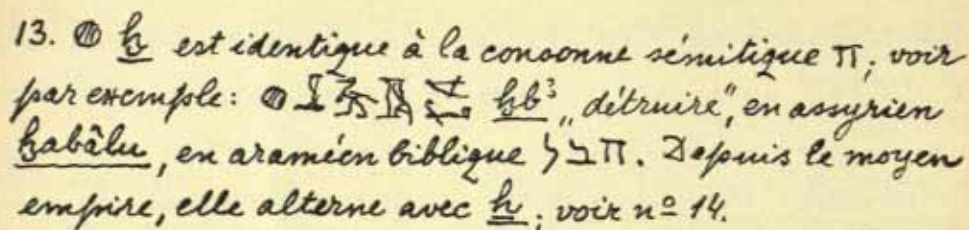 13. 𓐍 ḫ est identique à la consonne sémitique ח; voir
par exemple: 𓐍 ḫb³ „détruire”, en assyrien
ḫabâlu, en araméen biblique חבל. Depuis le moyen
empire, elle alterne avec ẖ; voir nº 14.